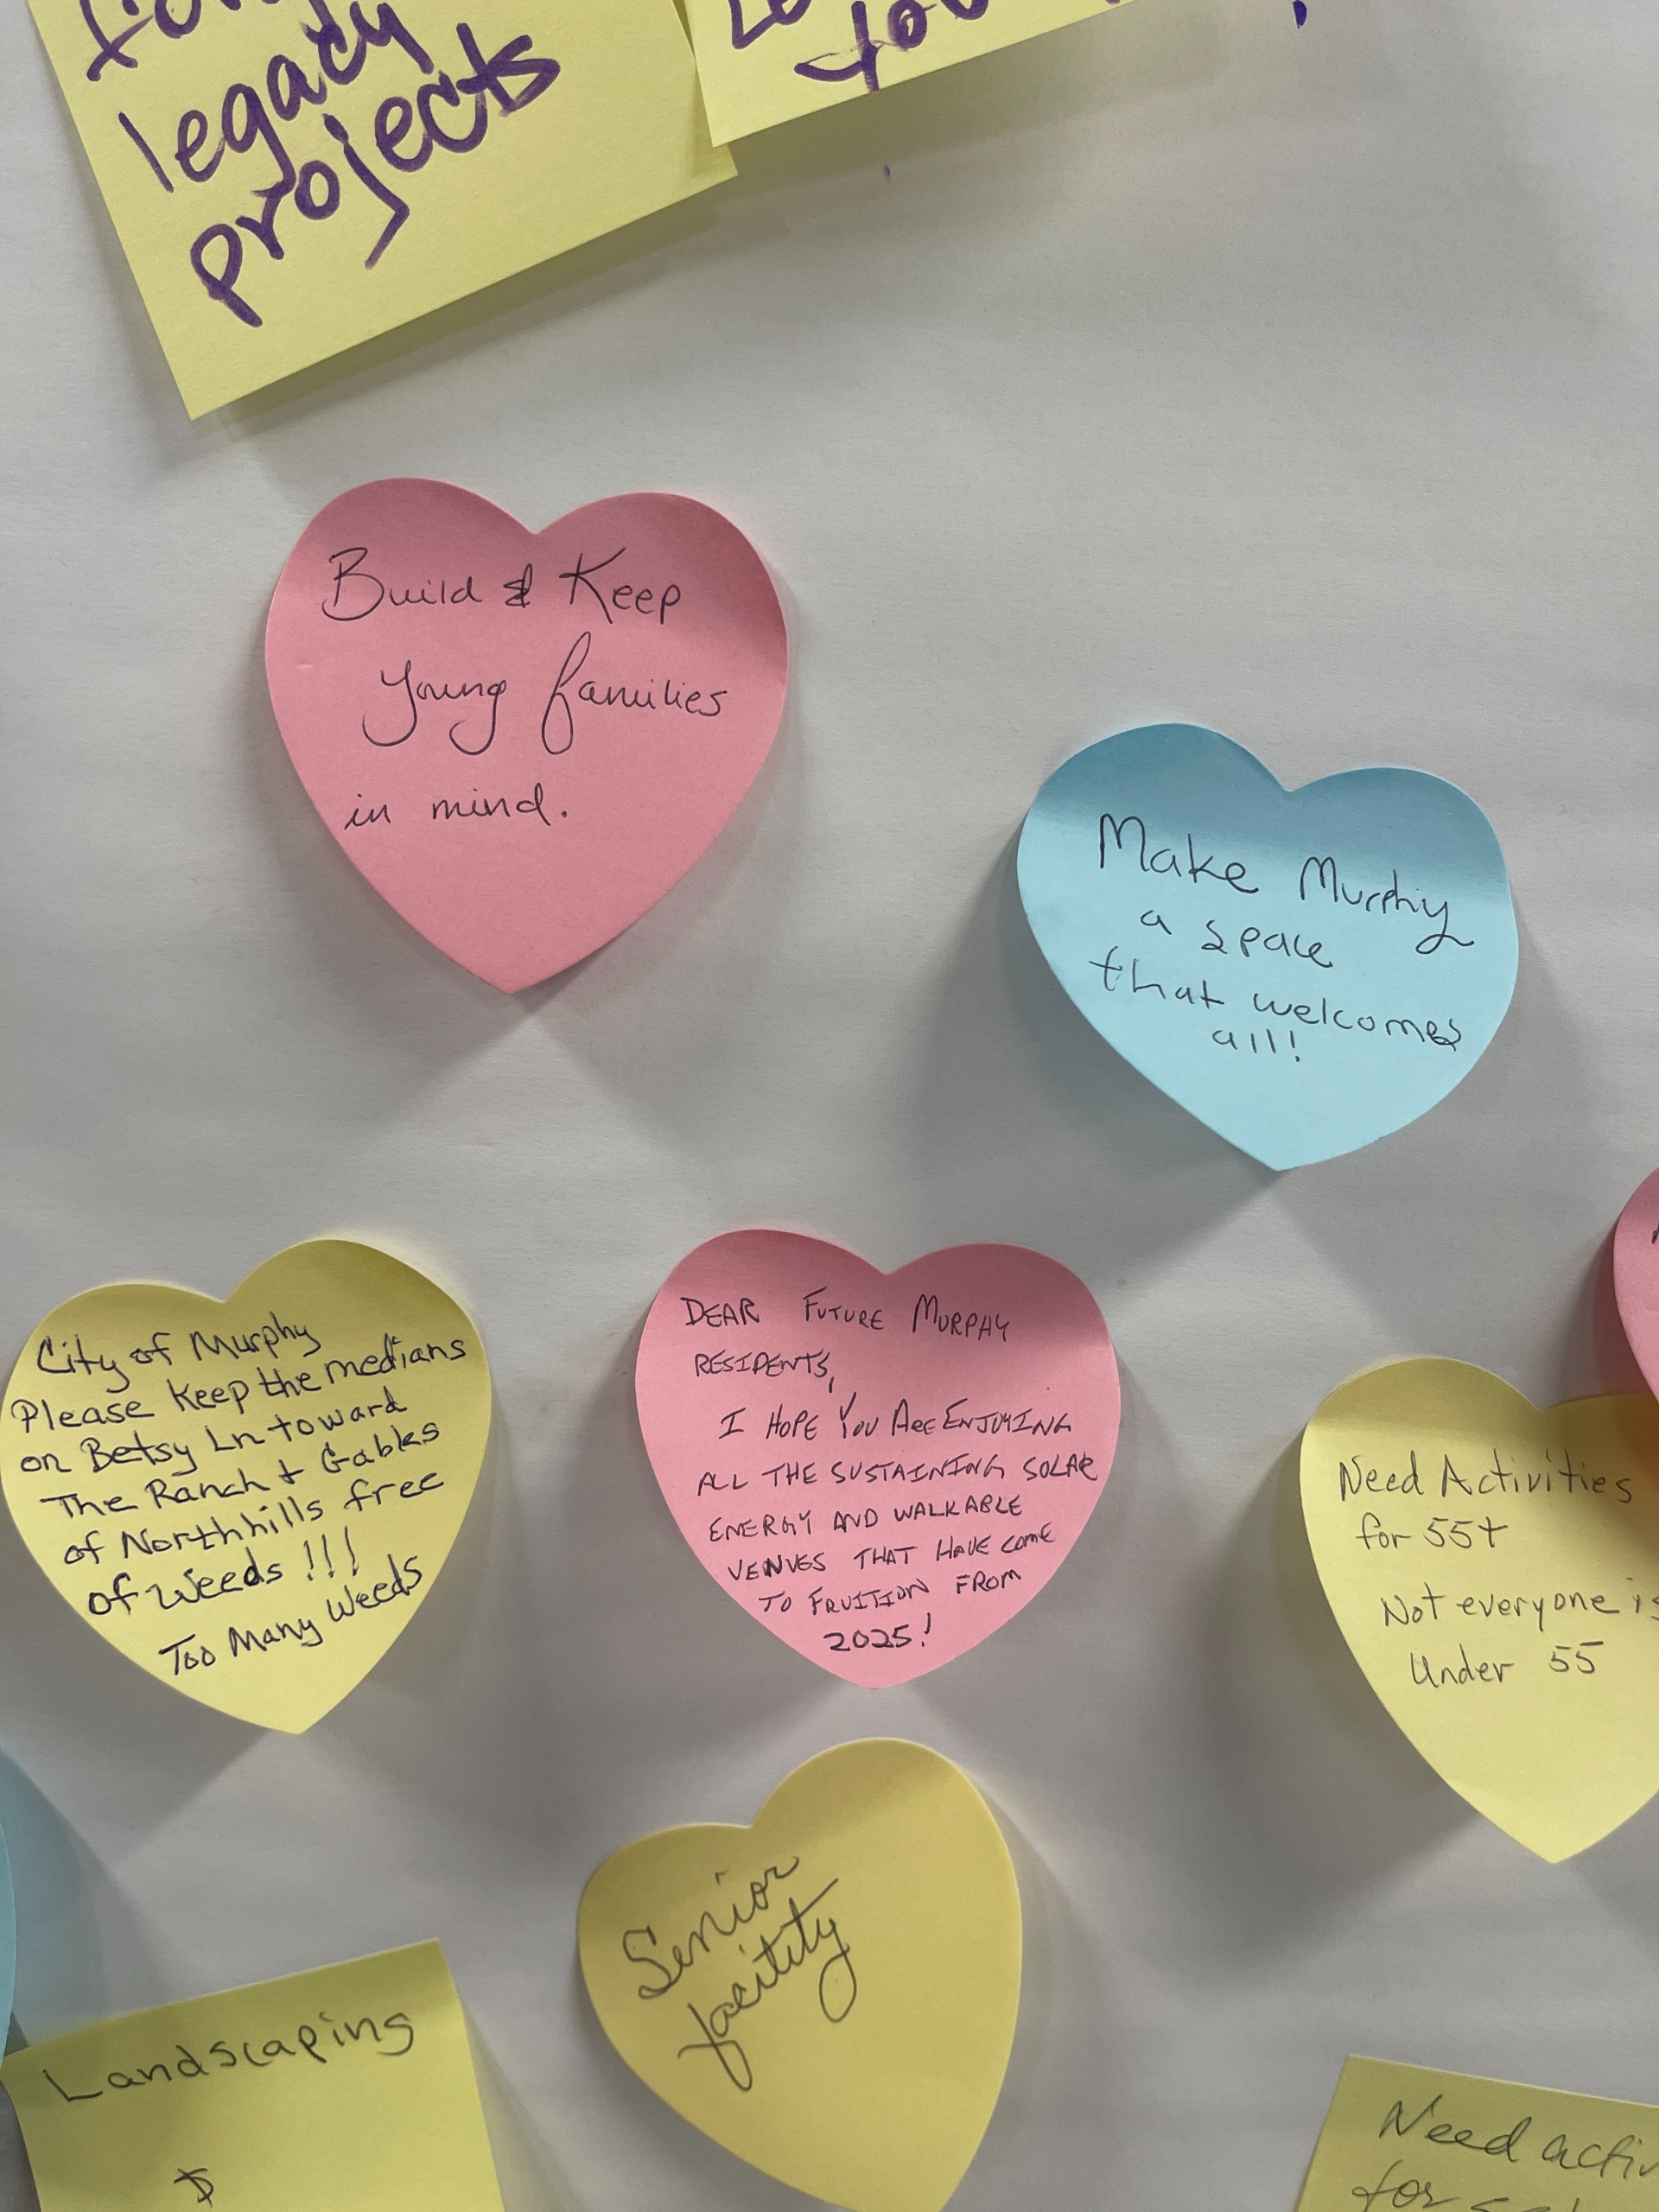 legacy
projects
Build & Keep
young families
in mind.
Make Murphy
a space
that welcomes
all!
City of Murphy
Please Keep the medians
on Betsy Ln toward
The Ranch & Gables
of Northhills free
of Weeds !!!
Too Many Weeds
DEAR FUTURE MURPHY
RESIDENTS,
I HOPE YOU ARE ENJOYING
ALL THE SUSTAINING SOLAR
ENERGY AND WALKABLE
VENUES THAT HAVE COME
TO FRUITION FROM
2025!
Need Activities
for 55+
Not everyone is
Under 55
Senior
facility
Landscaping
$
Need activ
for